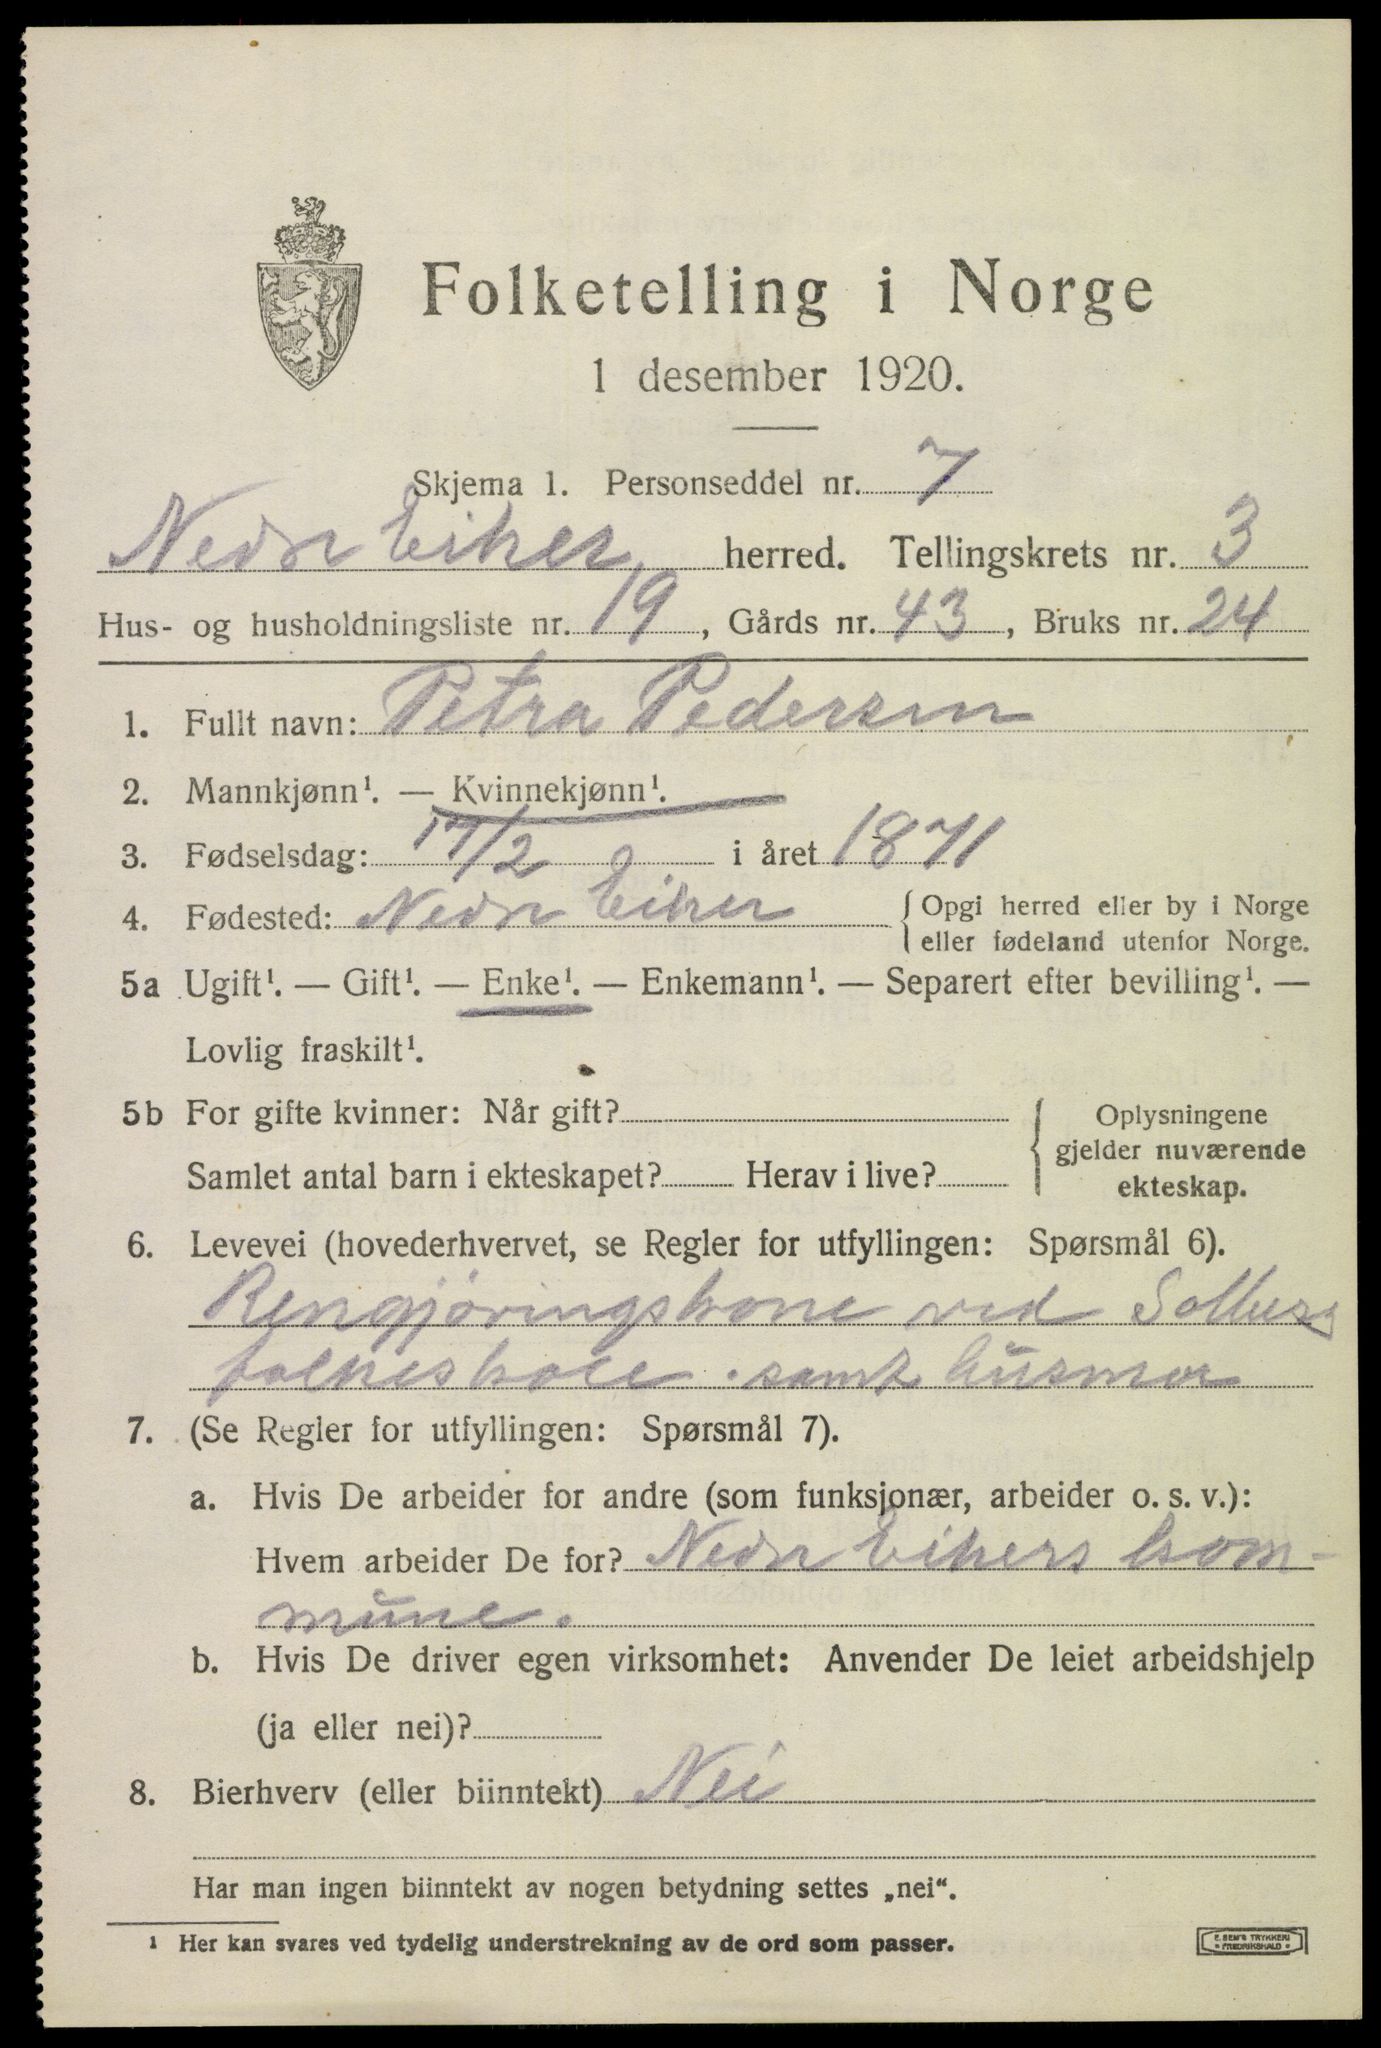 Folketelling i Norge
1 desember 1920.
Skjema 1. Personseddel nr. 7
Nedr Eiker herred. Tellingskrets nr. 3
Hus- og husholdningsliste nr. 19, Gårds nr. 43, Bruks nr. 24
1. Fullt navn: Petra Pedersen
2. Mannkjønn¹. — Kvinnekjønn¹.
3. Fødselsdag: 17/2 i året 1871
4. Fødested: Nedr Eiker { Opgi herred eller by i Norge
eller fødeland utenfor Norge.
5a Ugift¹. — Gift¹. — Enke¹. — Enkemann¹. — Separert efter bevilling¹. —
Lovlig fraskilt¹.
5b For gifte kvinner: Når gift? { Oplysningene
gjelder nuværende
Samlet antal barn i ekteskapet? Herav i live? ekteskap.
6. Levevei (hovederhvervet, se Regler for utfyllingen: Spørsmål 6).
Rengjøringskone ved
folkeskole. samt husmor
7. (Se Regler for utfyllingen: Spørsmål 7).
a. Hvis De arbeider for andre (som funksjonær, arbeider o. s. v.):
Hvem arbeider De for? Nedr Eikers kom-
mune.
b. Hvis De driver egen virksomhet: Anvender De leiet arbeidshjelp
(ja eller nei)?
8. Bierhverv (eller biinntekt) Nei
Har man ingen biinntekt av nogen betydning settes „nei“.
¹ Her kan svares ved tydelig understrekning av de ord som passer.
E. SEM'S TRYKKERI
• FREDRIKSHALD •